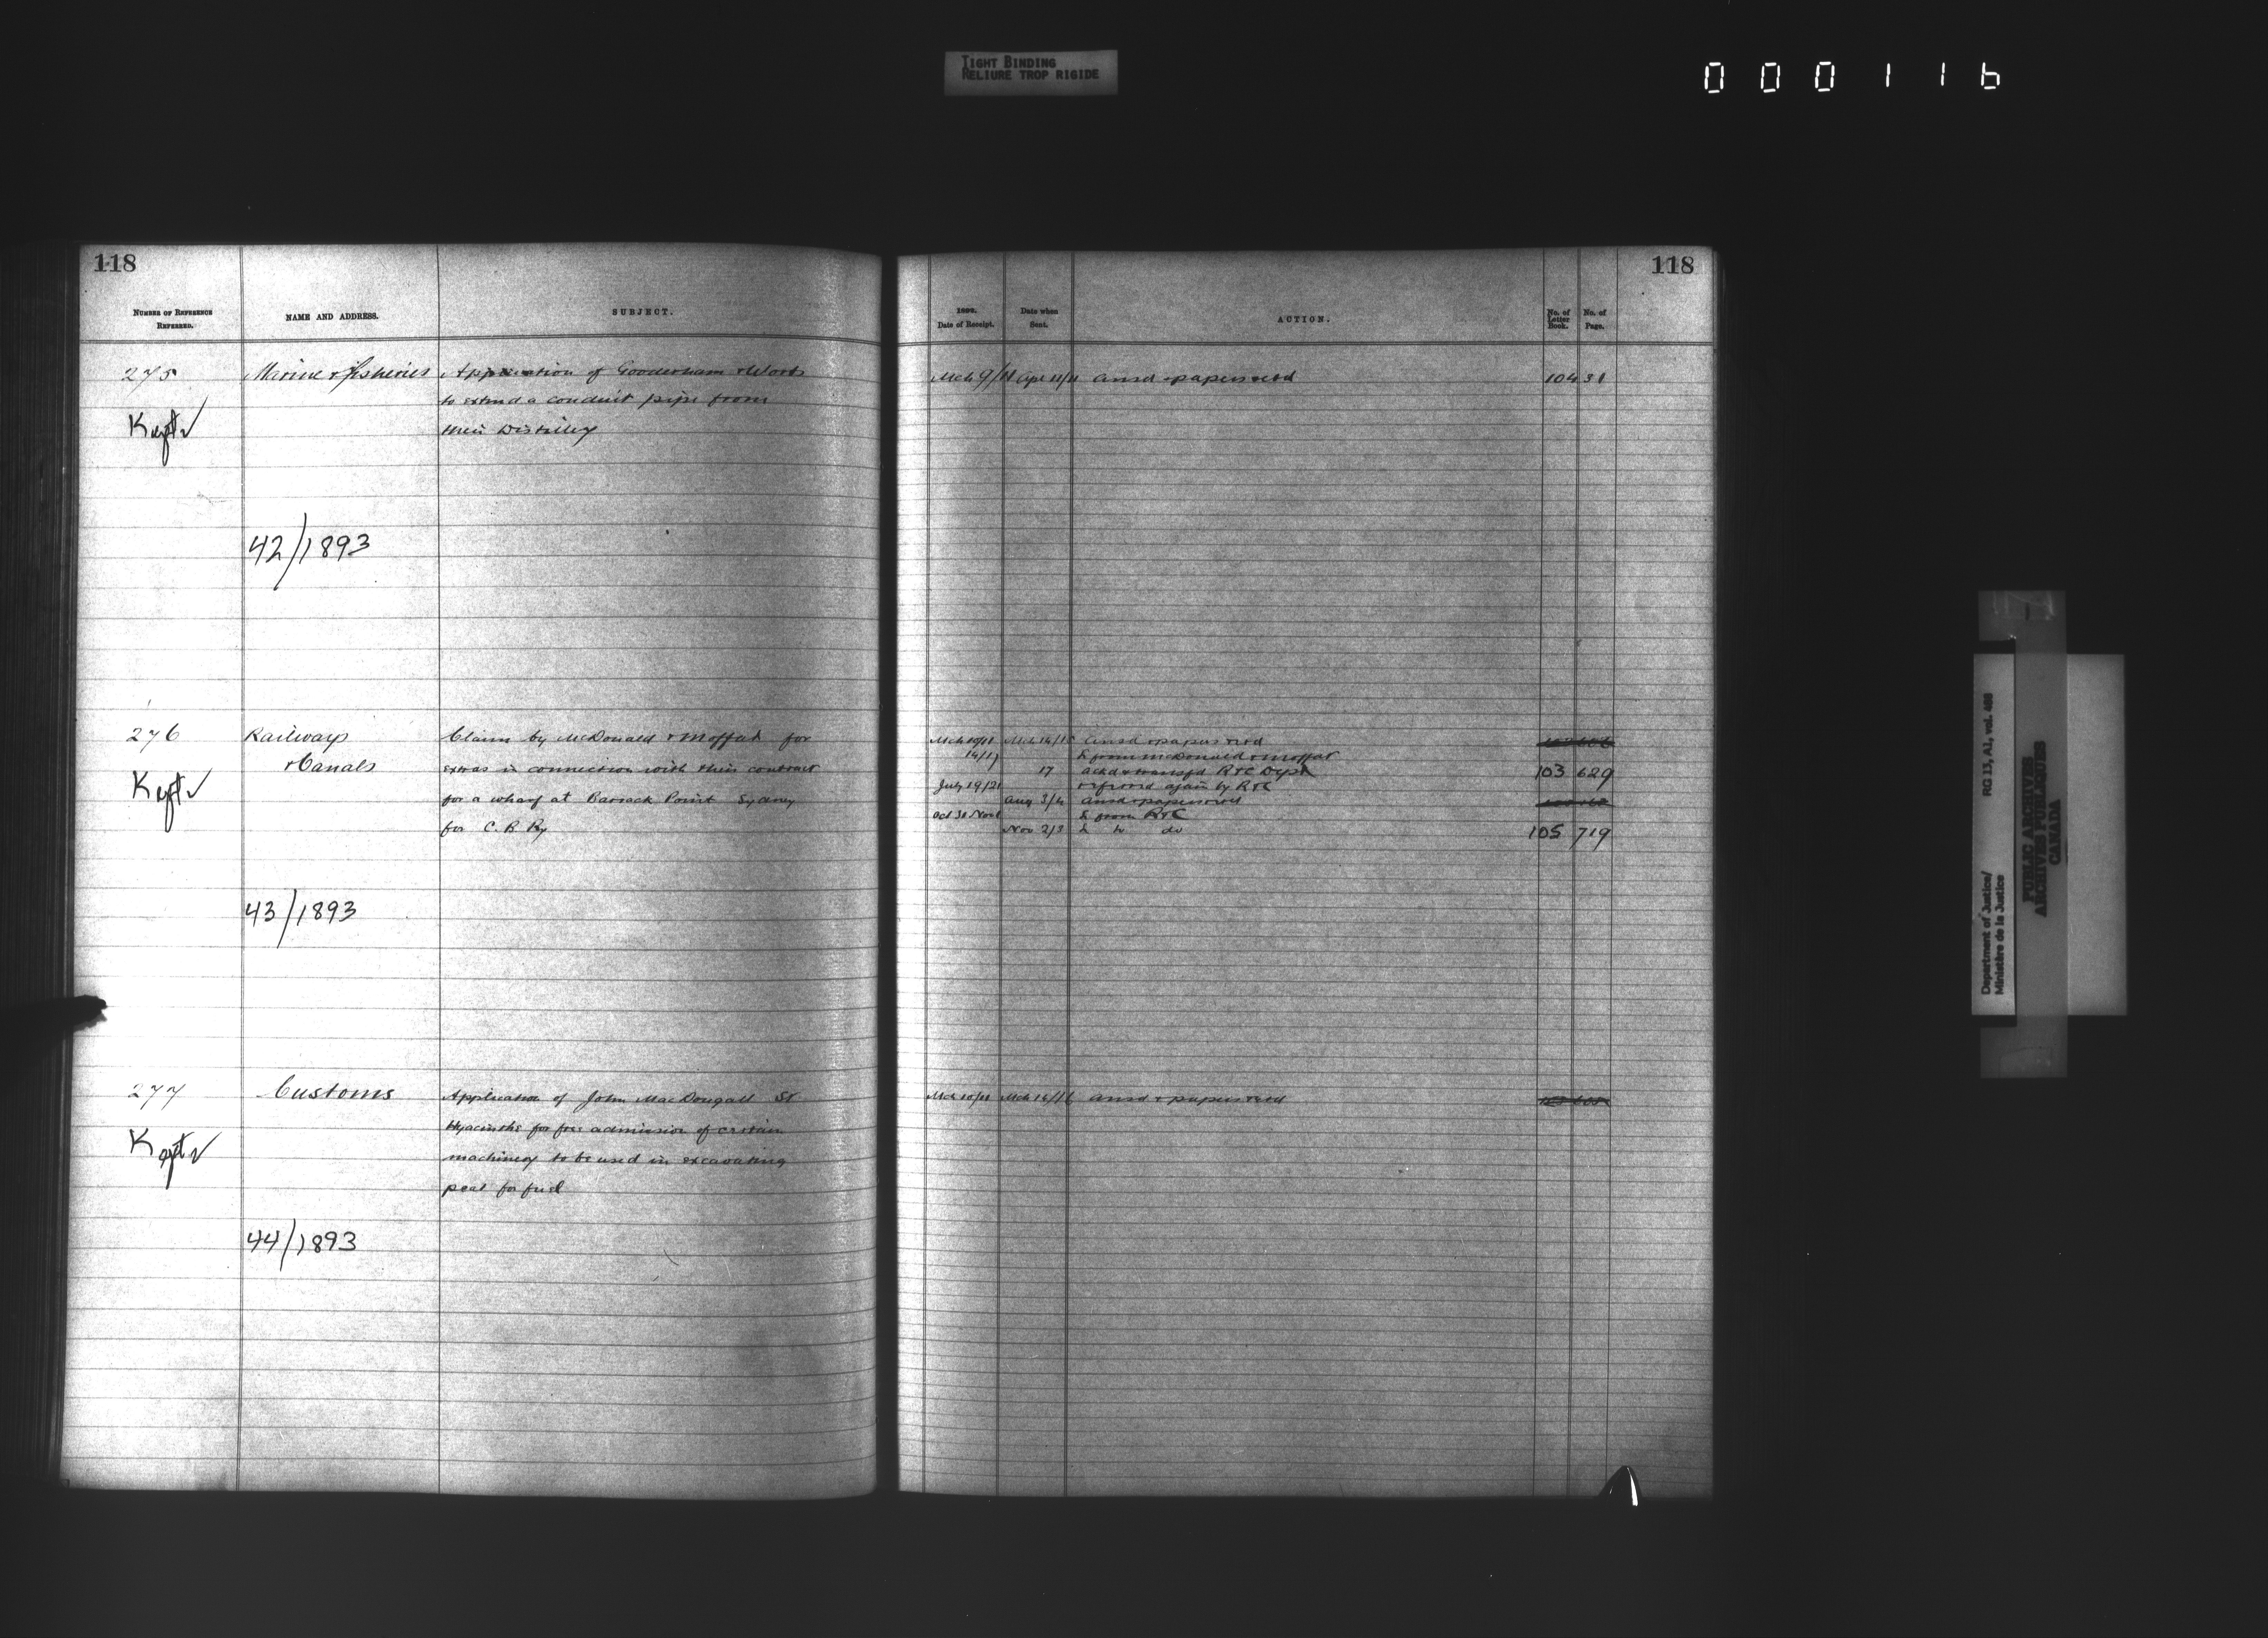 TIGHT BINDING
RELIURE TROP RIGIDE
000116
118
NUMBER OF REFERENCE
REFERRED.
NAME AND ADDRESS.
SUBJECT.
275
Marine & Fisheries
Application of Gooderham & Worts
to extend a conduit pipe from
their Distillery
Kept
42/1893
276
Railways
& Canals
Claim by McDonald & Moffat for
extras in connection with their contract
for a wharf at Barrack Point Sydney
for C. B Ry
Kept
43/1893
277
Customs
Application of John MacDougall St
Hyacinthe for free admission of certain
machinery to be used in excavating
peat for fuel
Kept
44/1893
118
Date of Receipt.
Date when
Sent.
ACTION.
No. of
Letter
Book.
No. of
Page.
Mch 9/11 Apl 11/11 ansd & papers retd 104 31
Mch 10/11 Mch 14/15 ansd & papers retd
14/17 L from McDonald & Moffat
17 ackd & transfd R & C Dept 103 629
July 19/21 referred again by R & C
Aug 3/4 ansd & papers retd
Oct 31 Nov 1 L from R & C
Nov 2/3 L to do 105 719
Mch 10/11 Mch 14/16 ansd & papers retd
Department of Justice/
Ministère de la Justice
RG 13, A1, vol.
PUBLIC ARCHIVES
ARCHIVES PUBLIQUES
CANADA